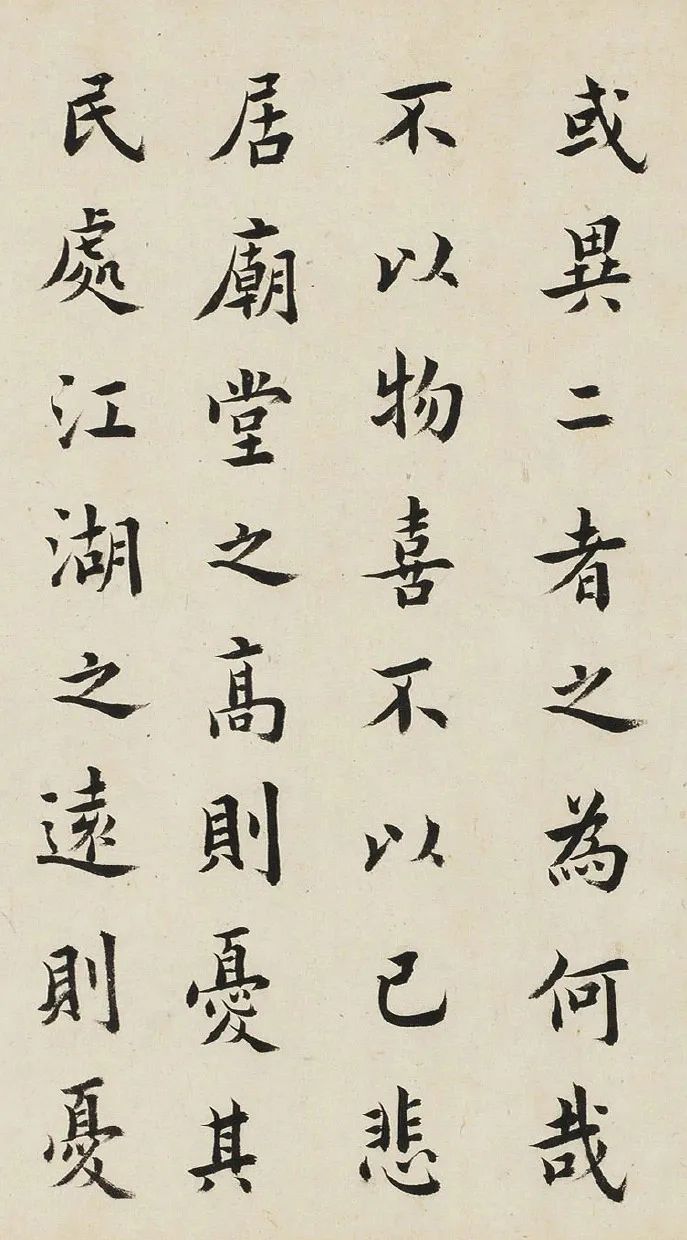 或異二者之為何哉
不以物喜不以己悲
居廟堂之高則憂其
民處江湖之遠則憂